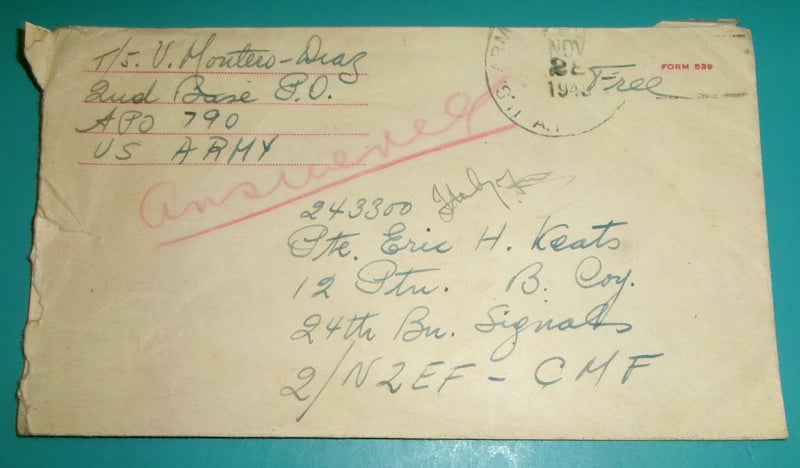 T/5. V. Montero-Diaz
2nd Base P.O.
APO 790
US ARMY
NOV
28
194
Free
FORM 539
answered
243300
Italy
Pte. Eric H. Keats
12 Ptn. B. Coy.
24th Bn. Signals
2/NZEF - CMF